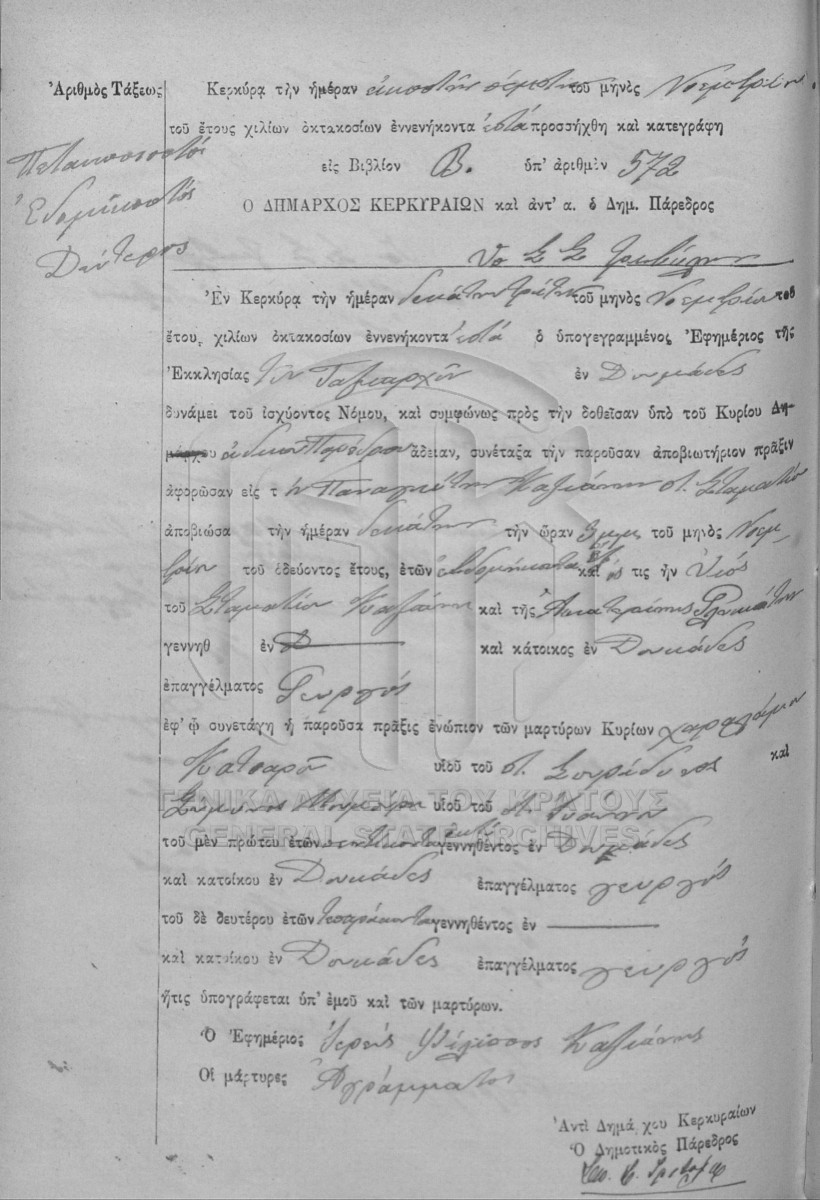 Ἀριθμὸς Τάξεως
Πεντακοσιοστὸς
Ἑβδομηκοστὸς
Δεύτερος
Κερκύρᾳ τὴν ἡμέραν εἰκοστὴν πέμπτην τοῦ μηνὸς Νοεμβρίου
τοῦ ἔτους χιλίων ὀκτακοσίων ἐννενήκοντα ἑπτὰ προσήχθη καὶ κατεγράφη
εἰς Βιβλίον Β. ὑπ' ἀριθμὸν 572
Ὁ ΔΗΜΑΡΧΟΣ ΚΕΡΚΥΡΑΙΩΝ καὶ ἀντ' α. ὁ Δημ. Πάρεδρος
Ἐν Κερκύρᾳ τὴν ἡμέραν δεκάτην τρίτην τοῦ μηνὸς Νοεμβρίου τοῦ
ἔτους χιλίων ὀκτακοσίων ἐννενήκοντα ἑπτὰ ὁ ὑπογεγραμμένος Ἐφημέριος τῆς
Ἐκκλησίας τῶν Ταξιαρχῶν ἐν Δουκάδες
δυνάμει τοῦ ἰσχύοντος Νόμου, καὶ συμφώνως πρὸς τὴν δοθεῖσαν ὑπὸ τοῦ Κυρίου Δη-
μάρχου Παρέδρου ἄδειαν, συνέταξα τὴν παροῦσαν ἀποβιωτήριον πρᾶξιν
ἀφορῶσαν εἰς τ ὸν Παναγιώτην Καζιάνην π. Σταματίου
ἀποβιώσα τὴν ἡμέραν δεκάτην τὴν ὥραν 3 μ.μ. τοῦ μηνὸς Νοεμ-
βρίου τοῦ ὁδεύοντος ἔτους, ἐτῶν ἑβδομήκοντα καὶ ὅς τις ἦν Υἱὸς
τοῦ Σταματίου Καζιάνη καὶ τῆς Αἰκατερίνης
γεννηθ ἐν Δ καὶ κάτοικος ἐν Δουκάδες
ἐπαγγέλματος Γεωργός
ἐφ' ᾧ συνετάγη ἡ παροῦσα πρᾶξις ἐνώπιον τῶν μαρτύρων Κυρίων Χαραλάμπου
Κατσαροῦ υἱοῦ τοῦ π. Σπυρίδωνος καὶ
υἱοῦ τοῦ π. Ἰωάννου
τοῦ μὲν πρώτου ἐτῶν γεννηθέντος ἐν Δουκάδες
καὶ κατοίκου ἐν Δουκάδες ἐπαγγέλματος γεωργός
τοῦ δὲ δευτέρου ἐτῶν τεσσαράκοντα γεννηθέντος ἐν
καὶ κατοίκου ἐν Δουκάδες ἐπαγγέλματος γεωργός
ἥτις ὑπογράφεται ὑπ' ἐμοῦ καὶ τῶν μαρτύρων.
Ὁ Ἐφημέριος Ἱερεὺς Φίλιππος Καζιάνης
Οἱ μάρτυρες Ἀγράμματοι
Ἀντὶ Δημάρχου Κερκυραίων
Ὁ Δημοτικὸς Πάρεδρος
ΓΕΝΙΚΑ ΑΡΧΕΙΑ ΤΟΥ ΚΡΑΤΟΥΣ
GENERAL STATE ARCHIVES